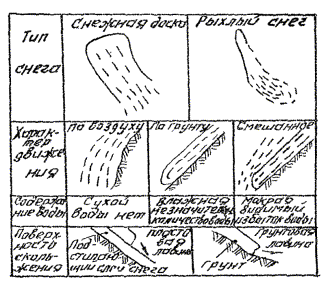 Тип
снега
Снежная доска
Рыхлый снег
Харак-
тер
движе-
ния
По воздуху
По грунту
Смешанное
Содержа-
ние воды
Сухой
воды нет
Влажная
незначительн.
количество воды
Мокрая
видимый
избыток воды
Поверх-
ности
сколь-
жения
Под
стилаю-
щий слой снега
пласто
вая
лавина
Грунт
грунтовая
лавина